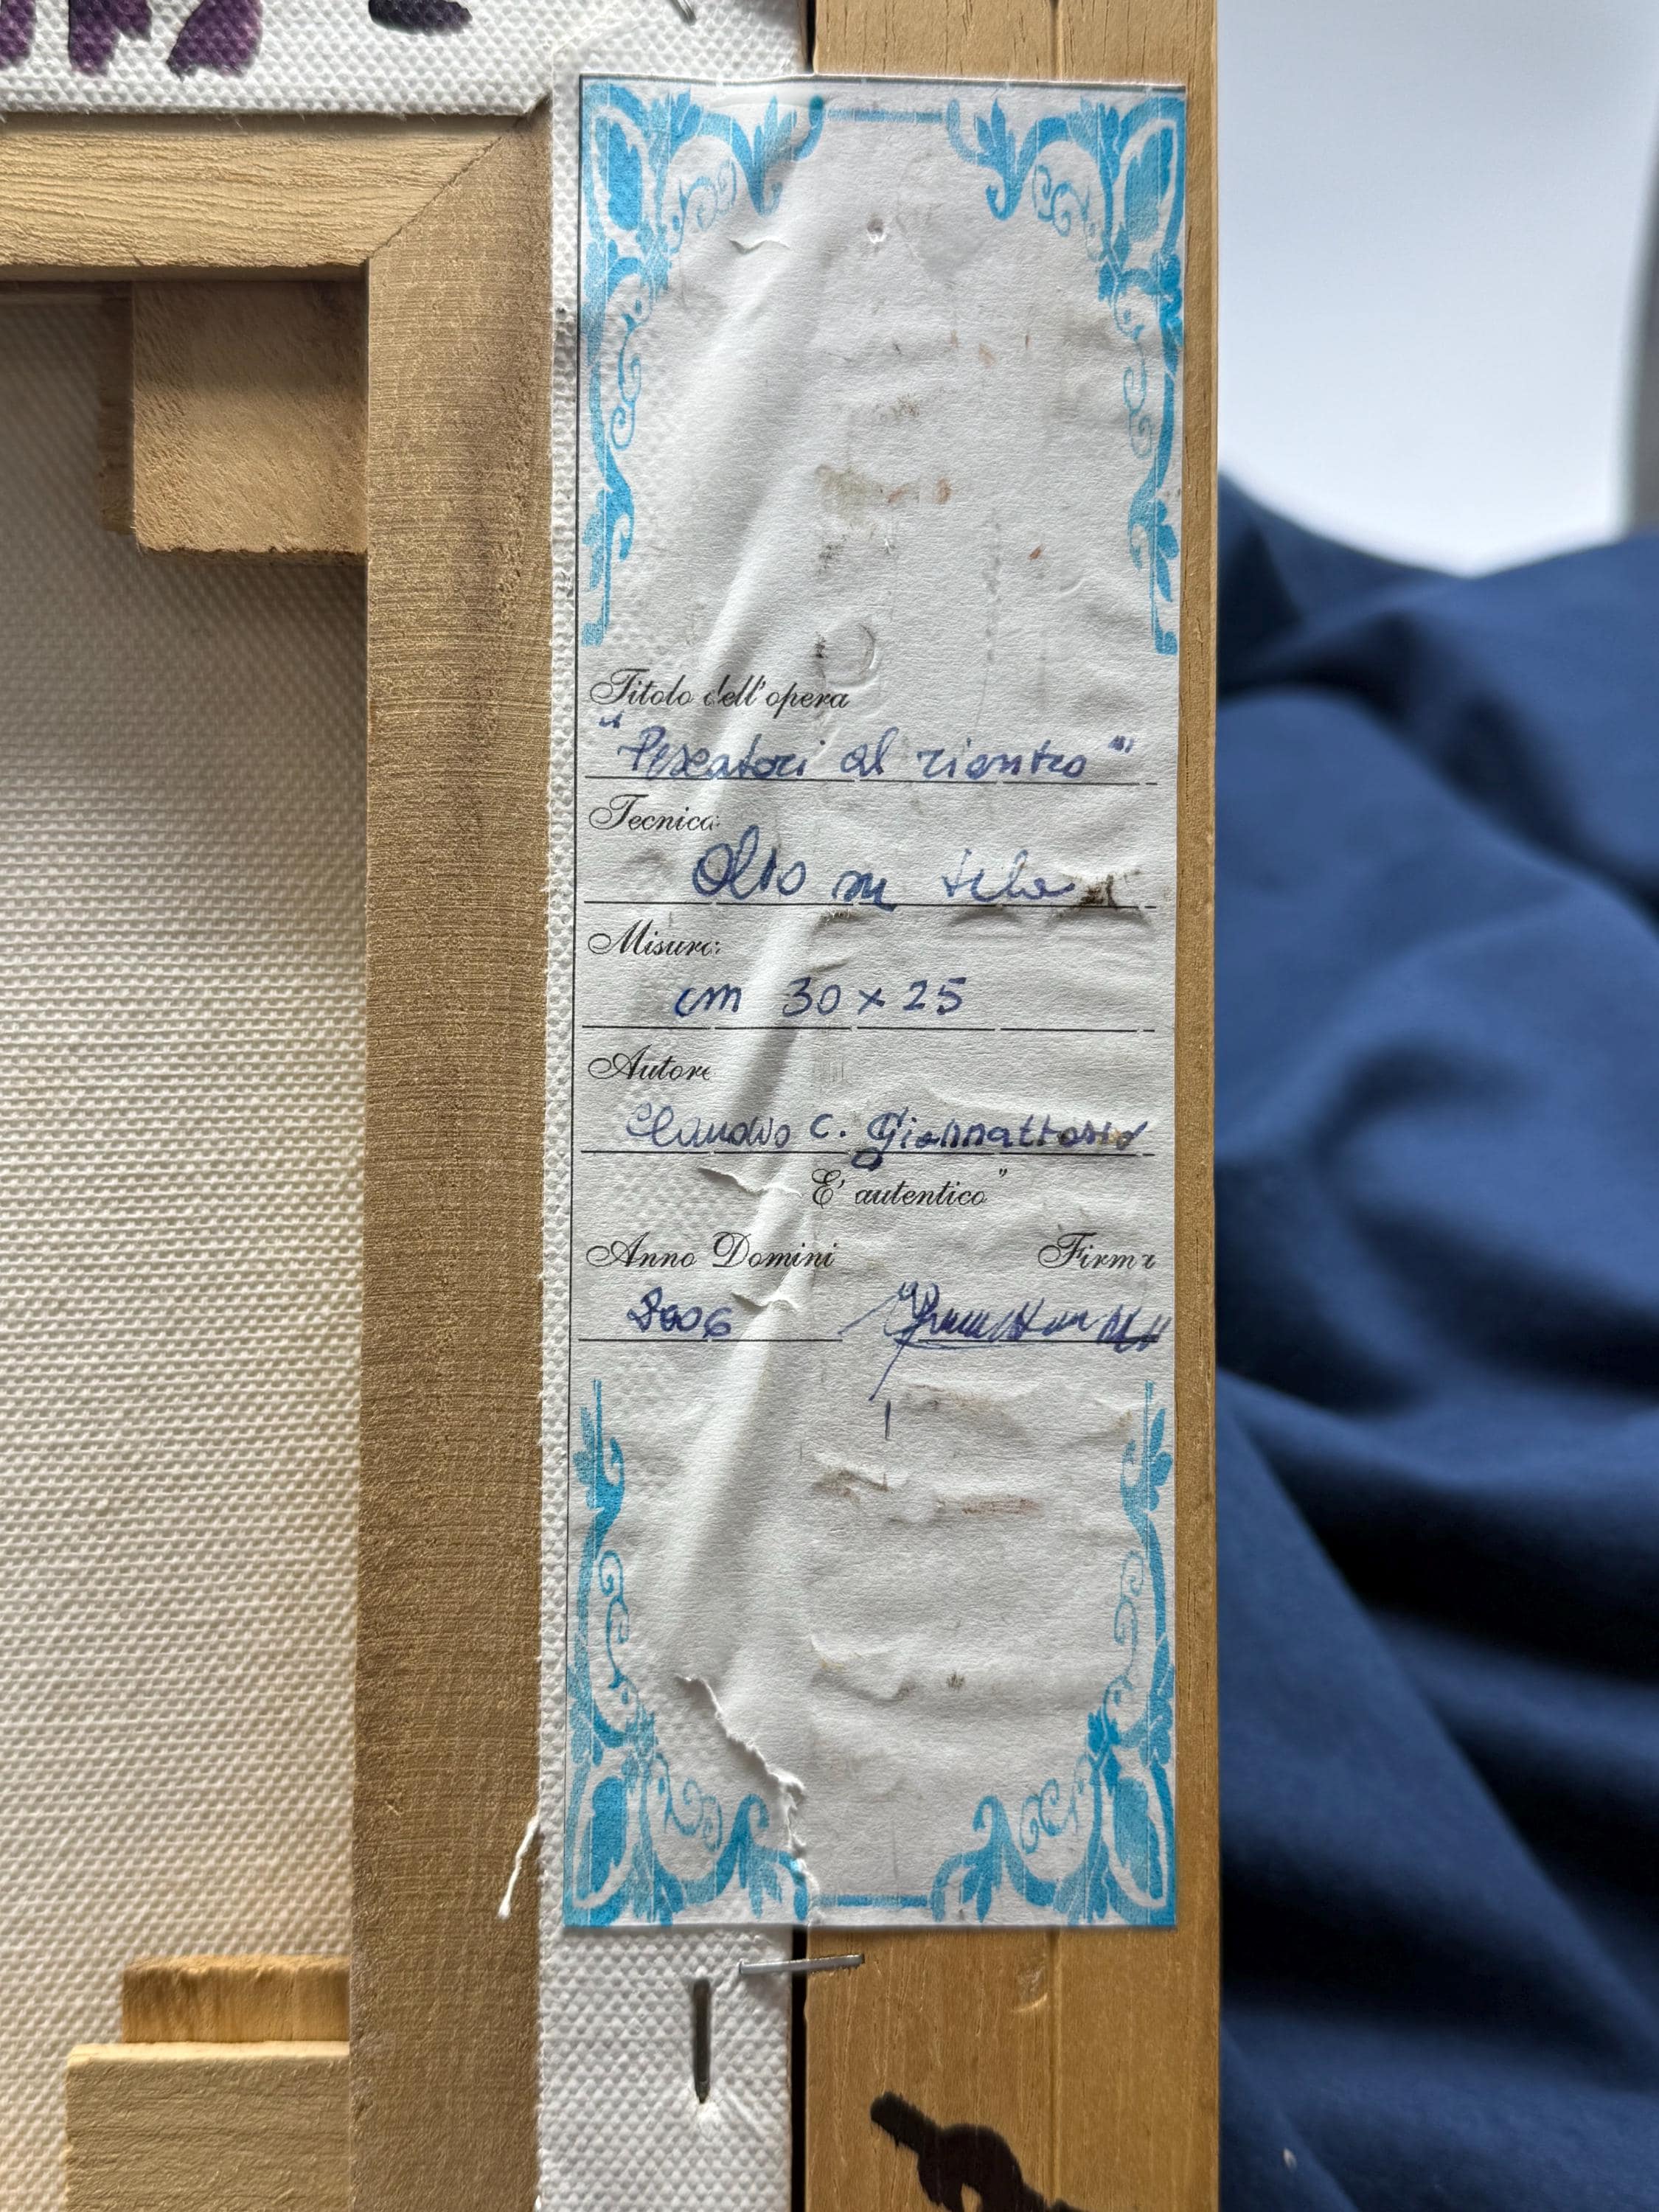 Titolo dell'opera
"Pescatori al rientro"
Tecnica
Olio su tela
Misure
cm 30 x 25
Autore
Claudio C. Giannattasio
E' autentico"
Anno Domini Firma
2006